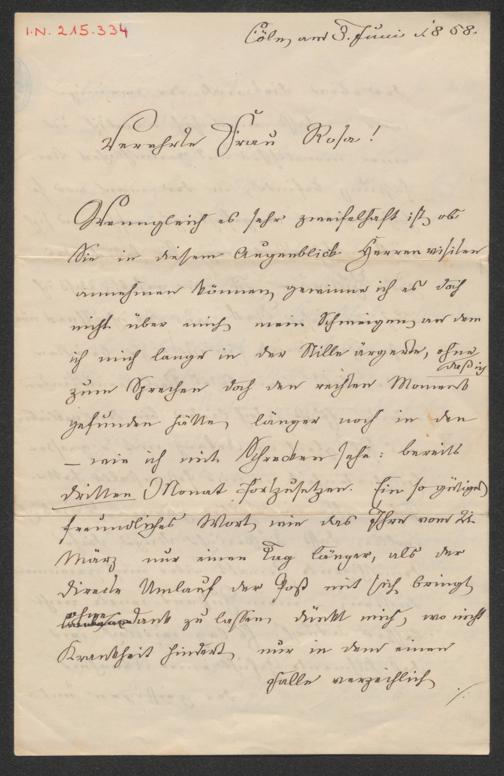 I.N. 215.334
Cöln, am 3. Juni 1858.
Verehrte Frau Rosa!
Wenngleich es sehr zweifelhaft ist, ob
Sie in diesem Augenblick Herrenvisiten
annehmen können, gewinne ich es doch
nicht über mich, mein Schweigen, an dem
ich mich lange in der Stille ärgerte, ohne
daß ich
zum Sprechen doch den rechten Moment
gefunden hätte, länger noch in den
– wie ich mit Schrecken sehe: bereits
dritten Monat fortzusetzen. Ein so gütiges,
freundliches Wort, wie das Ihre vom 21.
März nur einen Tag länger, als der
directe Umlauf der Post mit sich bringt,
ohne
Dank zu lassen, dünkt mich, wo nicht
Krankheit hindert, nur in dem einen
Falle verzeihlich,